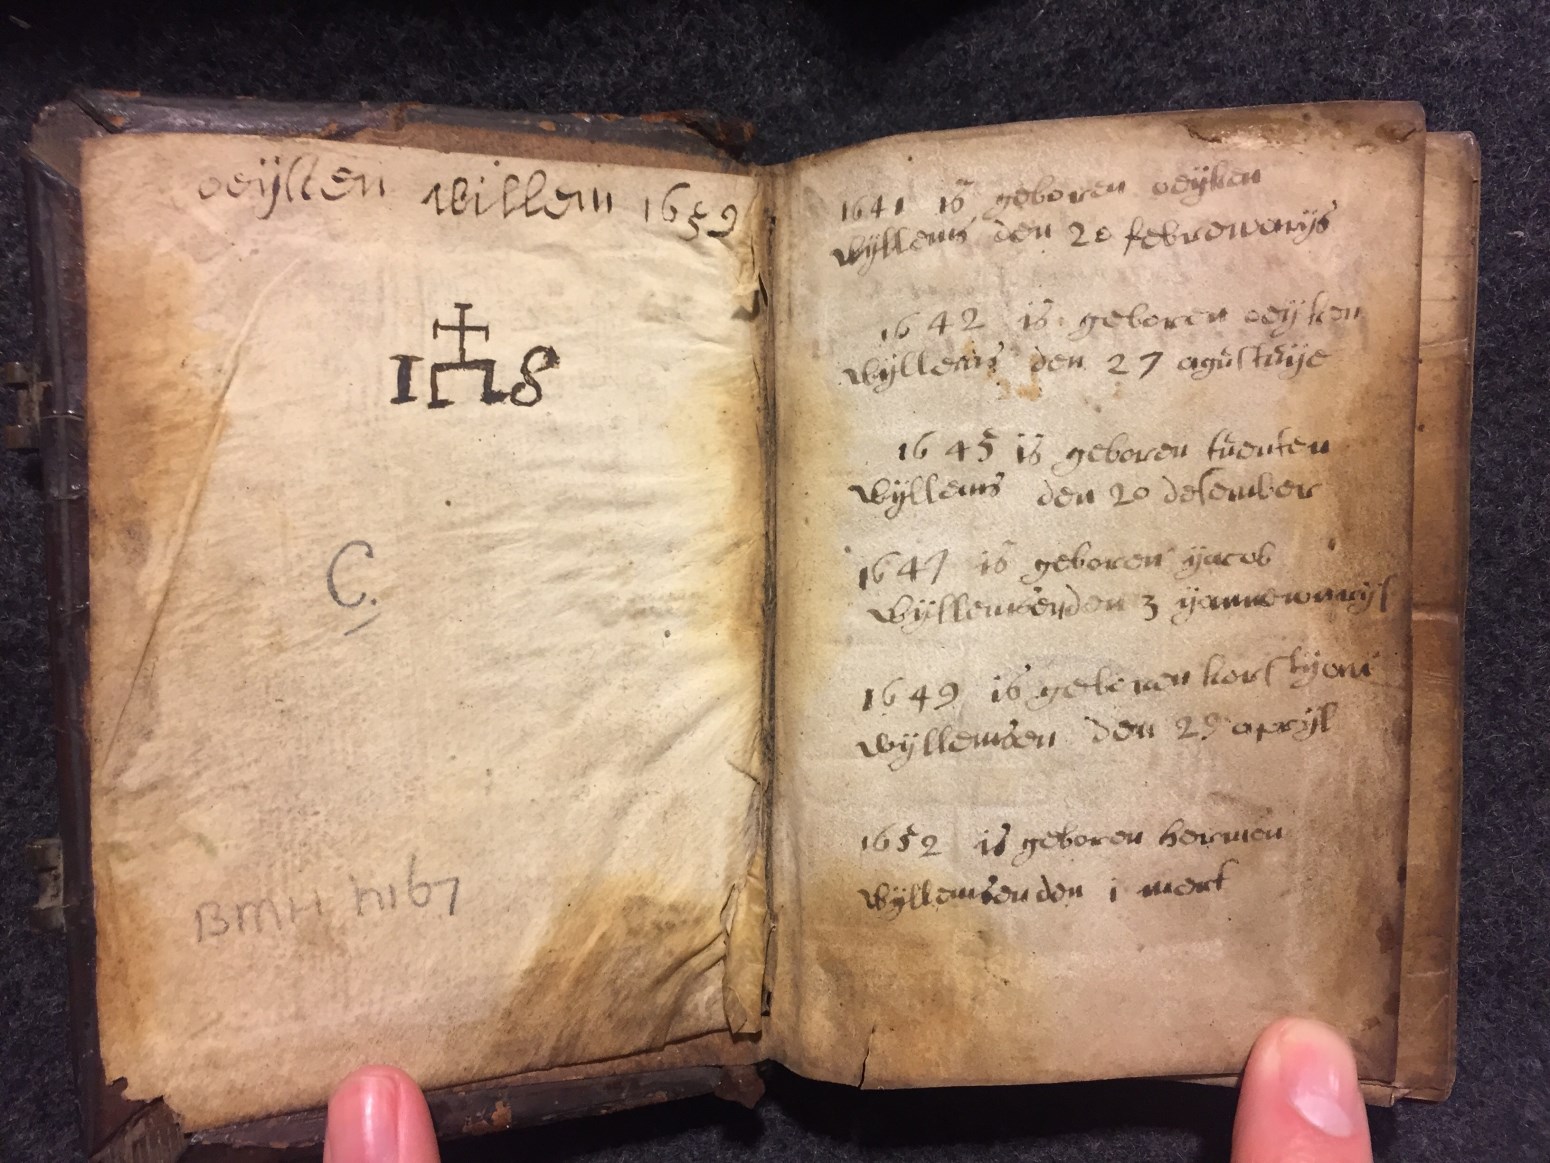 oeyllen willem 1659
IHS
C.
BMH h167
1641 is geboren oeyken
wyllems den 20 febrewarys
1642 is geboren oeyken
wyllems den 27 agustuije
1645 is geboren
wyllems den 20 desember
1647 is geboren yacob
wyllemsen den 3 yannewarys
1649 is geboren korstyoen
wyllemsen den 29 apryl
1652 is geboren hermen
wyllemsen den 1 mert